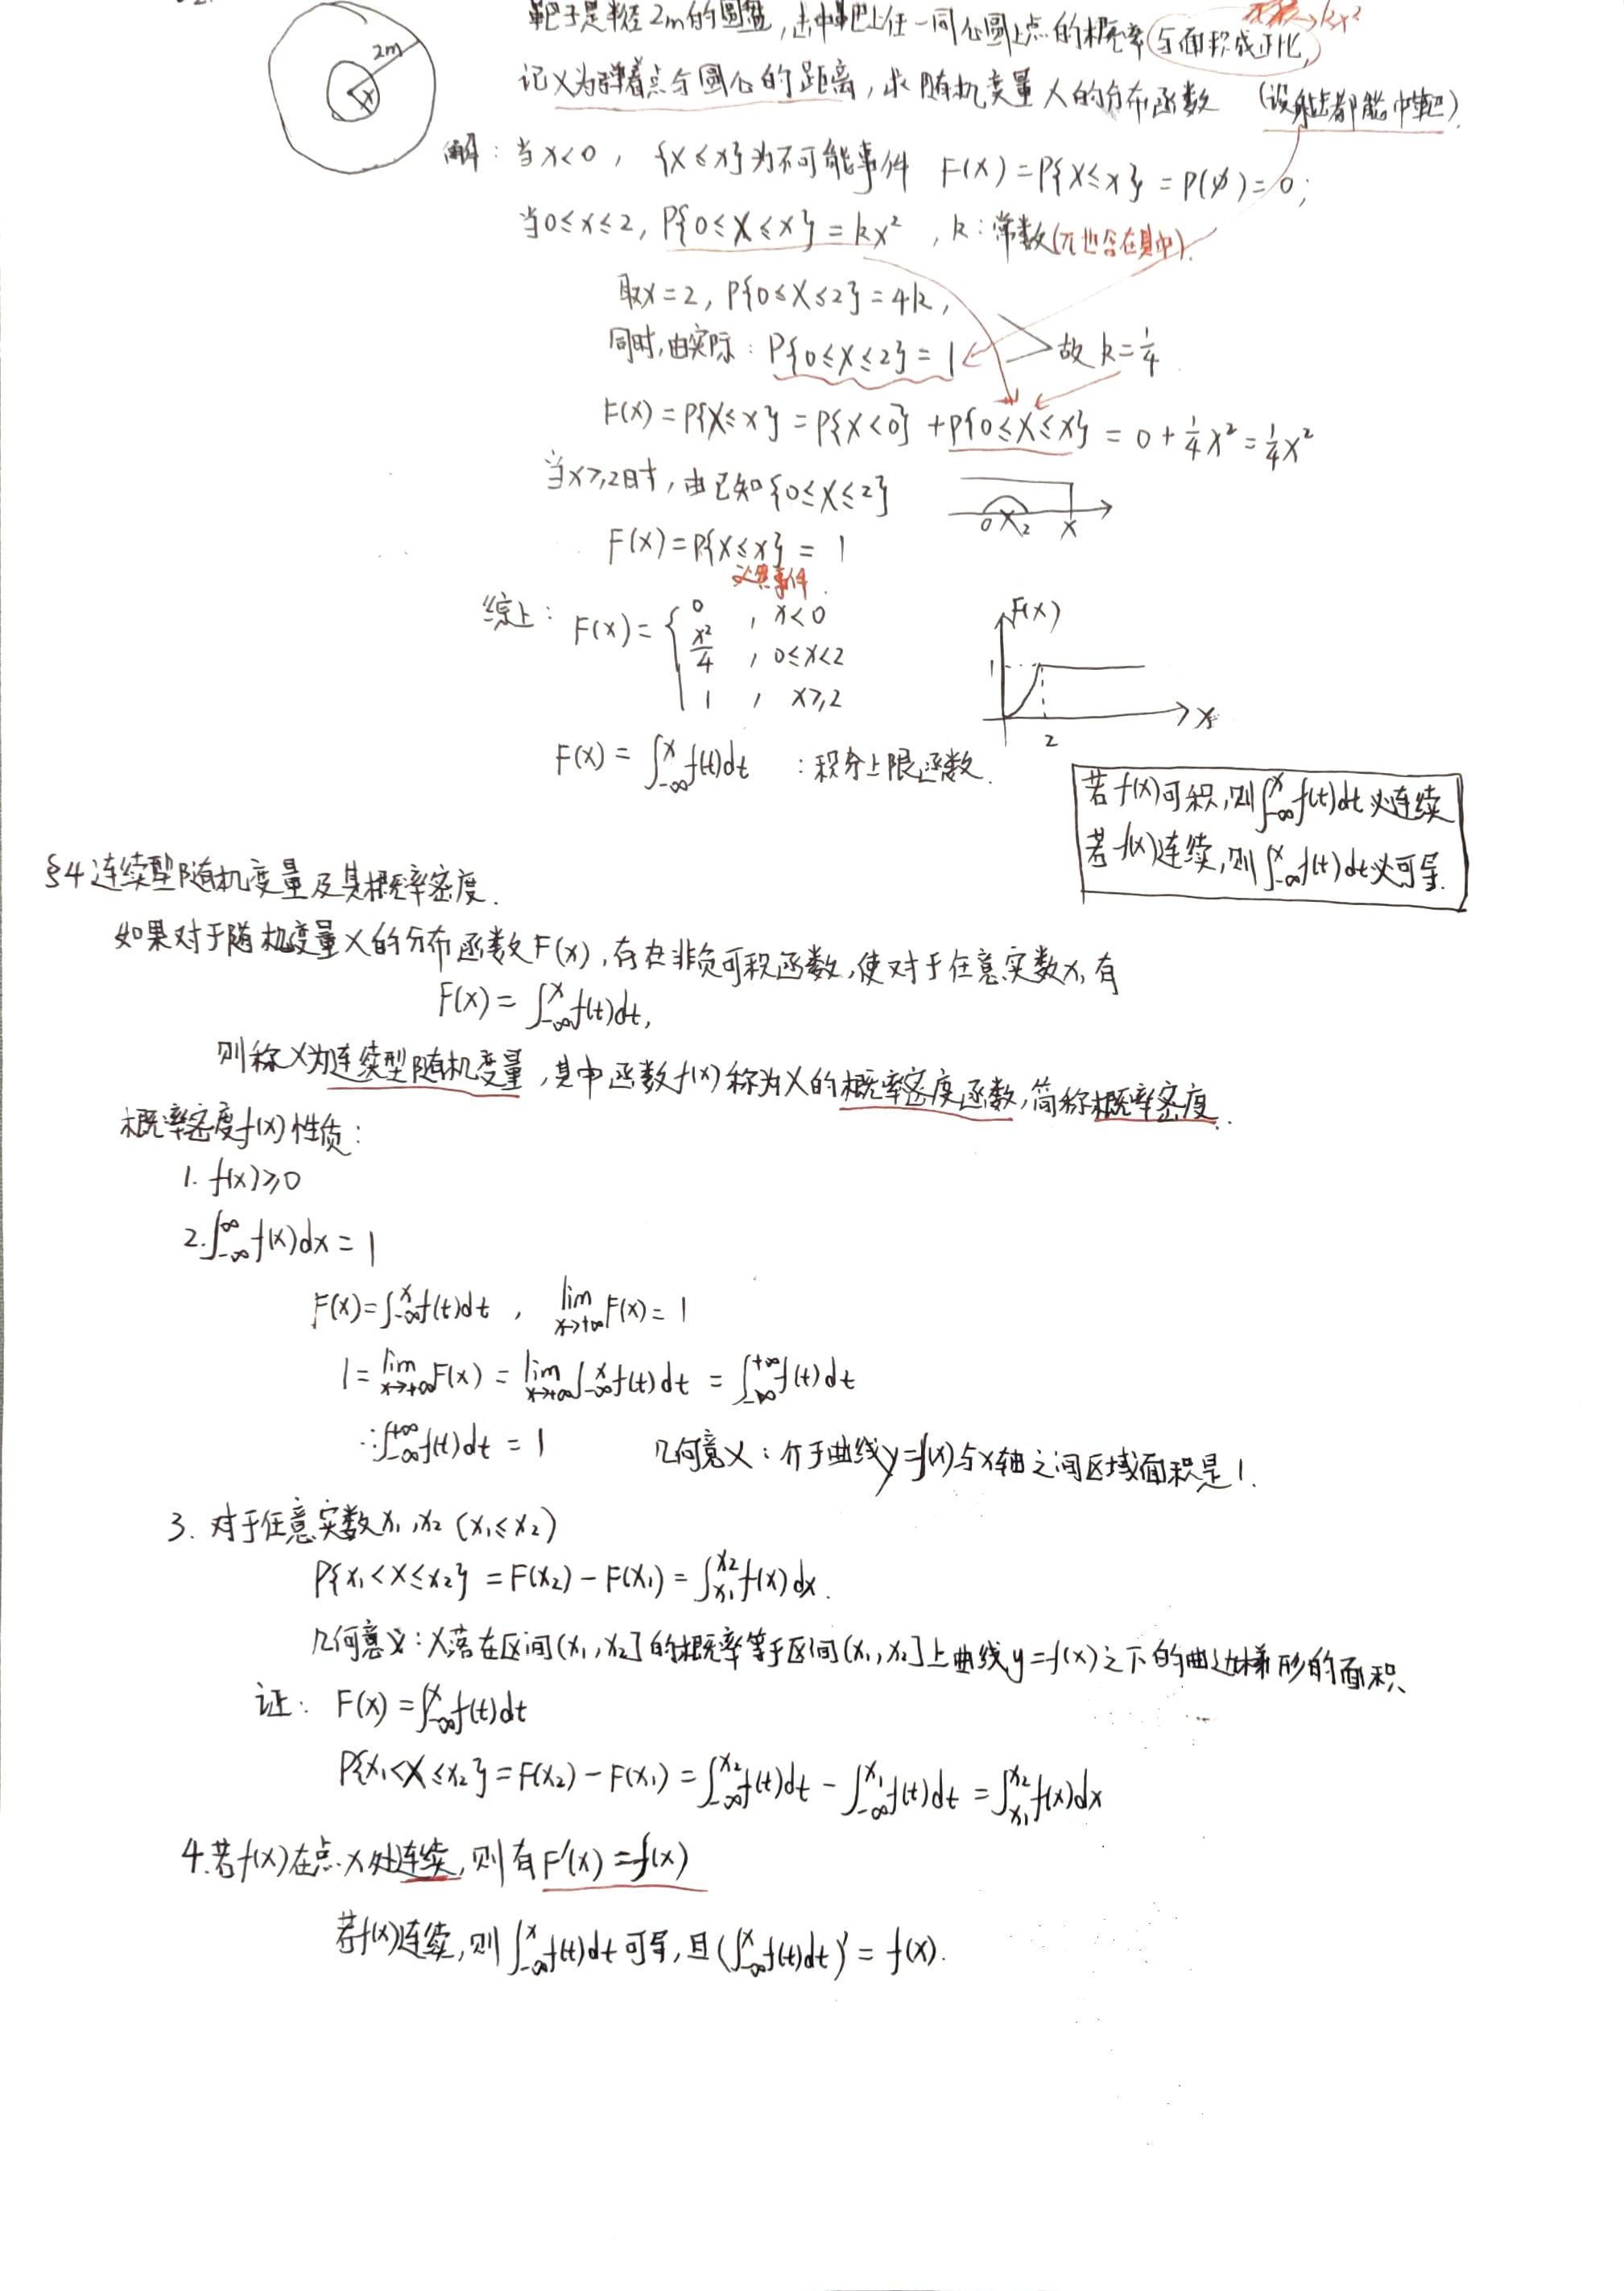 靶子是半径2m的圆盘,击中靶上任一同心圆上点的概率与面积成正比, → kx²
2m
x
记X为弹着点与圆心的距离,求随机变量X的分布函数 (设射击都能中靶).
解: 当x<0, {X≤x}为不可能事件 F(x)=P{X≤x}=P(∅)=0;
当0≤x≤2, P{0≤X≤x}=kx², k:常数(π也含在其中).
取x=2, P{0≤X≤2}=4k,
同时,由实际: P{0≤X≤2}=1 故k=1/4
F(x)=P{X≤x}=P{X<0}+P{0≤X≤x}=0+1/4x²=1/4x²
当x≥2时,由已知{0≤X≤2}
0 X 2 x
F(x)=P{X≤x}=1
必然事件
综上: F(x)={ 0 , x<0
x²/4 , 0≤x<2
1 , x≥2
F(x)
1
2
x
F(x)=∫_{-∞}^{x}f(t)dt :积分上限函数.
若f(x)可积,则∫_{-∞}^{x}f(t)dt必连续
若f(x)连续,则∫_{-∞}^{x}f(t)dt必可导.
§4连续型随机变量及其概率密度.
如果对于随机变量X的分布函数F(x),存在非负可积函数,使对于任意实数x,有
F(x)=∫_{-∞}^{x}f(t)dt,
则称X为连续型随机变量,其中函数f(x)称为X的概率密度函数,简称概率密度.
概率密度f(x)性质:
1. f(x)≥0
2. ∫_{-∞}^{∞}f(x)dx=1
F(x)=∫_{-∞}^{x}f(t)dt , lim_{x→+∞}F(x)=1
1=lim_{x→+∞}F(x)=lim_{x→+∞}∫_{-∞}^{x}f(t)dt=∫_{-∞}^{+∞}f(t)dt
∴∫_{-∞}^{+∞}f(t)dt=1 几何意义:介于曲线y=f(x)与x轴之间区域面积是1.
3. 对于任意实数x₁,x₂ (x₁≤x₂)
P{x₁<X≤x₂}=F(x₂)-F(x₁)=∫_{x₁}^{x₂}f(x)dx.
几何意义:X落在区间(x₁,x₂]的概率等于区间(x₁,x₂]上曲线y=f(x)之下的曲边梯形的面积、
证: F(x)=∫_{-∞}^{x}f(t)dt
P{x₁<X≤x₂}=F(x₂)-F(x₁)=∫_{-∞}^{x₂}f(t)dt-∫_{-∞}^{x₁}f(t)dt=∫_{x₁}^{x₂}f(x)dx
4.若f(x)在点x处连续,则有F'(x)=f(x)
若f(x)连续,则∫_{-∞}^{x}f(t)dt可导,且(∫_{-∞}^{x}f(t)dt)'=f(x).